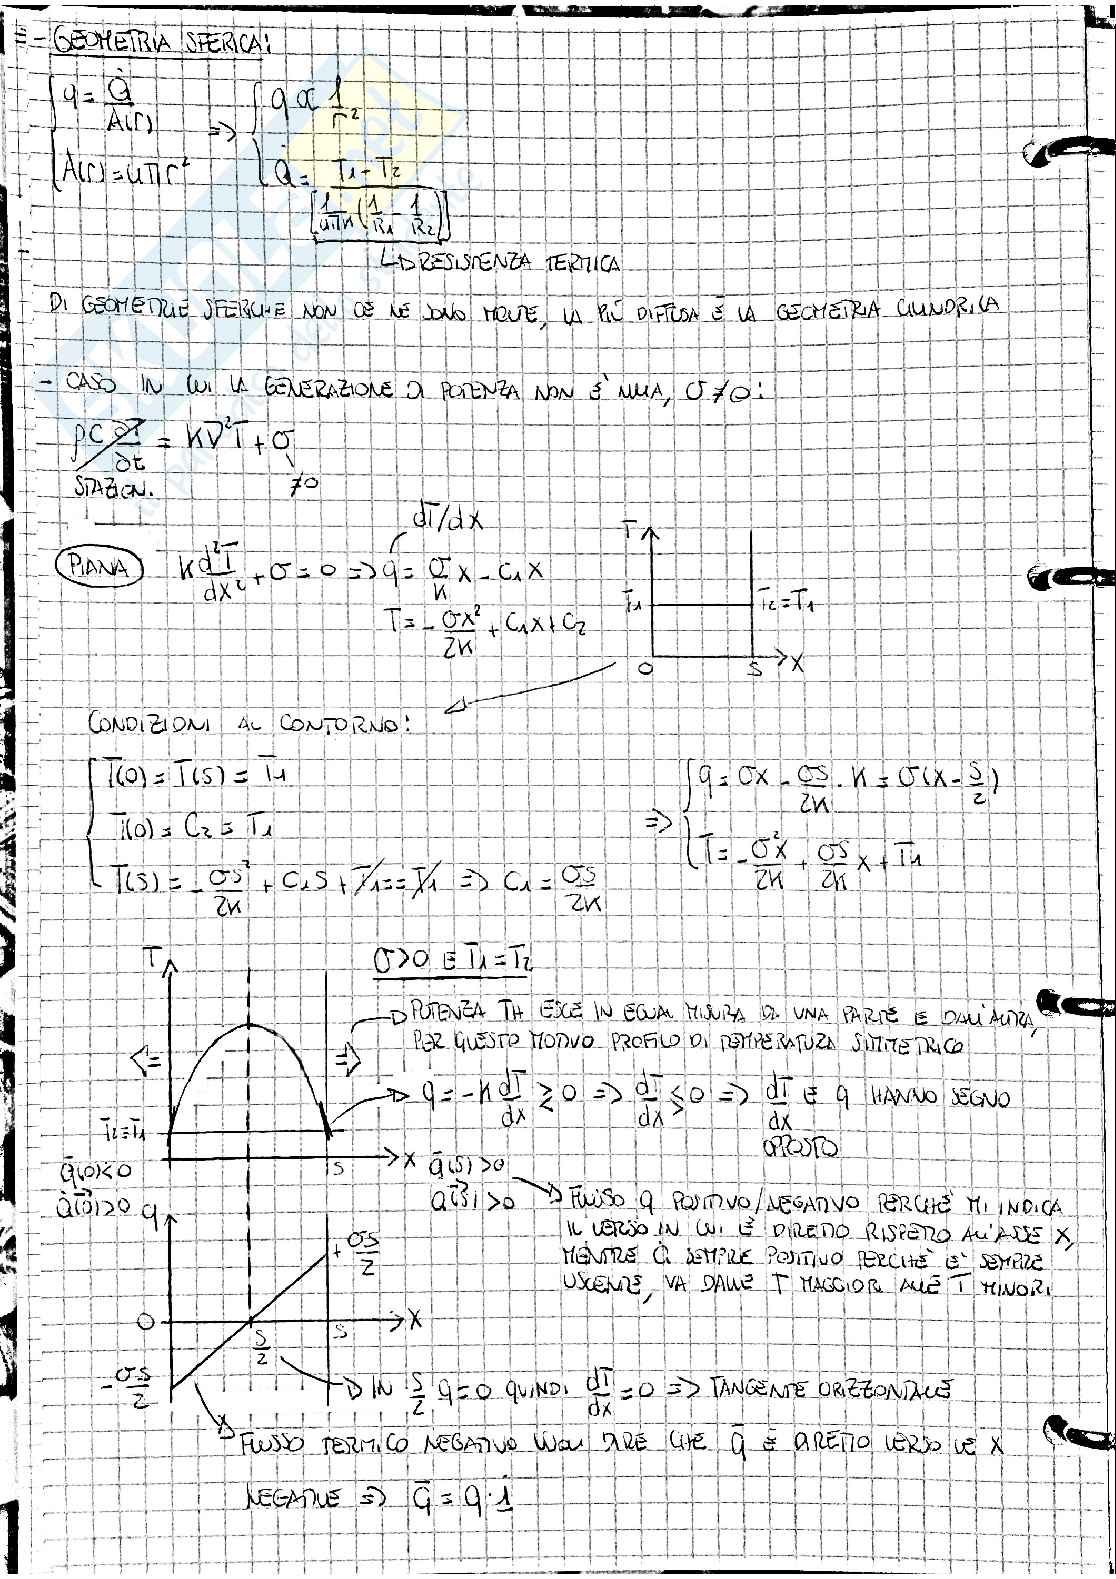 - GEOMETRIA SFERICA:
{ q = Q̇ / A(r) ⇒ { q ∝ 1/r²
{ A(r) = 4πr² { Q̇ = T1 - T2 / [1/4πK (1/R1 - 1/R2)]
↳ RESISTENZA TERMICA
DI GEOMETRIE SFERICHE NON CE NE SONO MOLTE, LA PIÙ DIFFUSA È LA GEOMETRIA CILINDRICA
- CASO IN CUI LA GENERAZIONE DI POTENZA NON È NULLA, σ≠0:
ρC ∂T/∂t = K∇²T + σ
STAZION. ≠0
dT/dX
PIANA K d²T/dX² + σ = 0 ⇒ q = σ/K X - C1X
T = - σX²/2K + C1X + C2
T
T1 T2=T1
O S X
CONDIZIONI AL CONTORNO:
{ T(0) = T(S) = T1
T(0) = C2 = T1
T(S) = - σS²/2K + C1S + T1 == T1 ⇒ C1 = σS/2K
⇒ { q = σX - σS/2K · K = σ(X - S/2)
T = - σ²X/2K + σS/2K X + T1
T
σ>0 E T1=T2
POTENZA TH ESCE IN EGUAL MISURA DA UNA PARTE E DALL'ALTRA,
PER QUESTO MOTIVO PROFILO DI TEMPERATURA SIMMETRICO
q = -K dT/dX ≷ 0 ⇒ dT/dX ≶ 0 ⇒ dT/dX E q HANNO SEGNO
OPPOSTO
T2=T1
S X
q̄(0)<0 q̄(S)>0
Q̇(0)>0 Q̇(S)>0
FLUSSO q POSITIVO/NEGATIVO PERCHÈ MI INDICA
IL VERSO IN CUI È DIRETTO RISPETTO ALL'ASSE X,
MENTRE Q̇ SEMPRE POSITIVO PERCHÈ È SEMPRE
USCENTE, VA DALLE T MAGGIORI ALLE T MINORI
q
+ σS/2
O S/2 S X
- σS/2
IN S/2 q=0 QUINDI dT/dX = 0 ⇒ TANGENTE ORIZZONTALE
FLUSSO TERMICO NEGATIVO VUOL DIRE CHE q̄ È DIRETTO VERSO LE X
NEGATIVE ⇒ q̄ = q · i